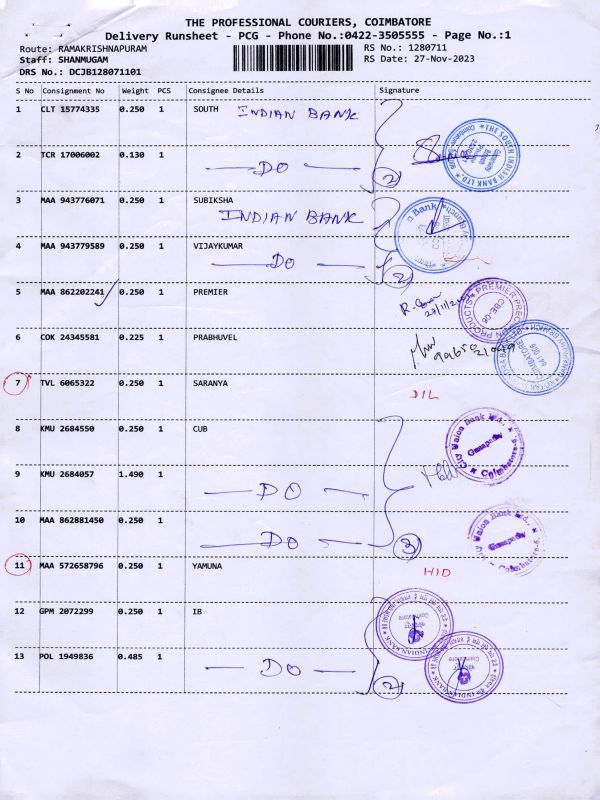 THE PROFESSIONAL COURIERS, COIMBATORE
Delivery Runsheet - PCG - Phone No.:0422-3505555 - Page No.:1
Route: RAMAKRISHNAPURAM RS No.: 1280711
Staff: SHANMUGAM RS Date: 27-Nov-2023
DRS No.: DCJB128071101
S No Consignment No Weight PCS Consignee Details Signature
1 CLT 15774335 0.250 1 SOUTH INDIAN BANK
2 TCR 17006002 0.130 1 — DO — 2
THE SOUTH INDIAN BANK LTD.
3 MAA 943776071 0.250 1 SUBIKSHA
INDIAN BANK
4 MAA 943779589 0.250 1 VIJAYKUMAR
— DO — 2
5 MAA 862202241 0.250 1 PREMIER
PREMIER PRECISION PRODUCTS CBE-06
6 COK 24345581 0.225 1 PRABHUVEL
COIMBATORE 641 006
7 TVL 6065322 0.250 1 SARANYA DIL
8 KMU 2684550 0.250 1 CUB
City Union Bank Ltd., Ganapathy Coimbatore-6.
9 KMU 2684057 1.490 1 — DO —
10 MAA 862881450 0.250 1 — DO — 3
City Union Bank Ltd., Ganapathy Coimbatore-6.
11 MAA 572658796 0.250 1 YAMUNA HID
12 GPM 2072299 0.250 1 IB
INDIAN BANK
13 POL 1949836 0.485 1 — DO — 2
INDIAN BANK